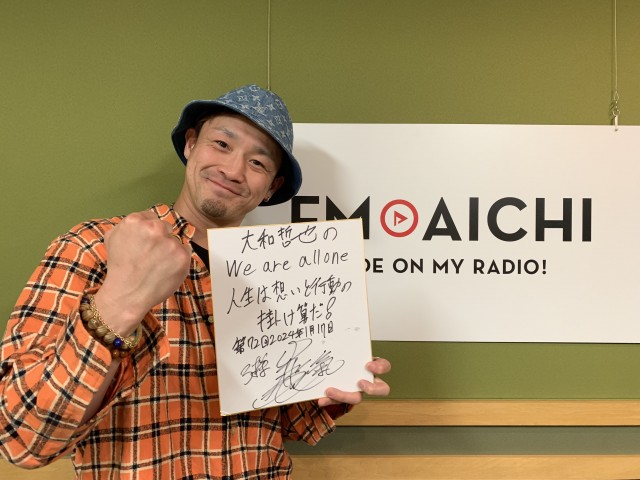 FM AICHI
DE ON MY RADIO!
大和哲也の
We are all one
人生は想いと行動の
掛け算だ!
第72回2024年1月17日